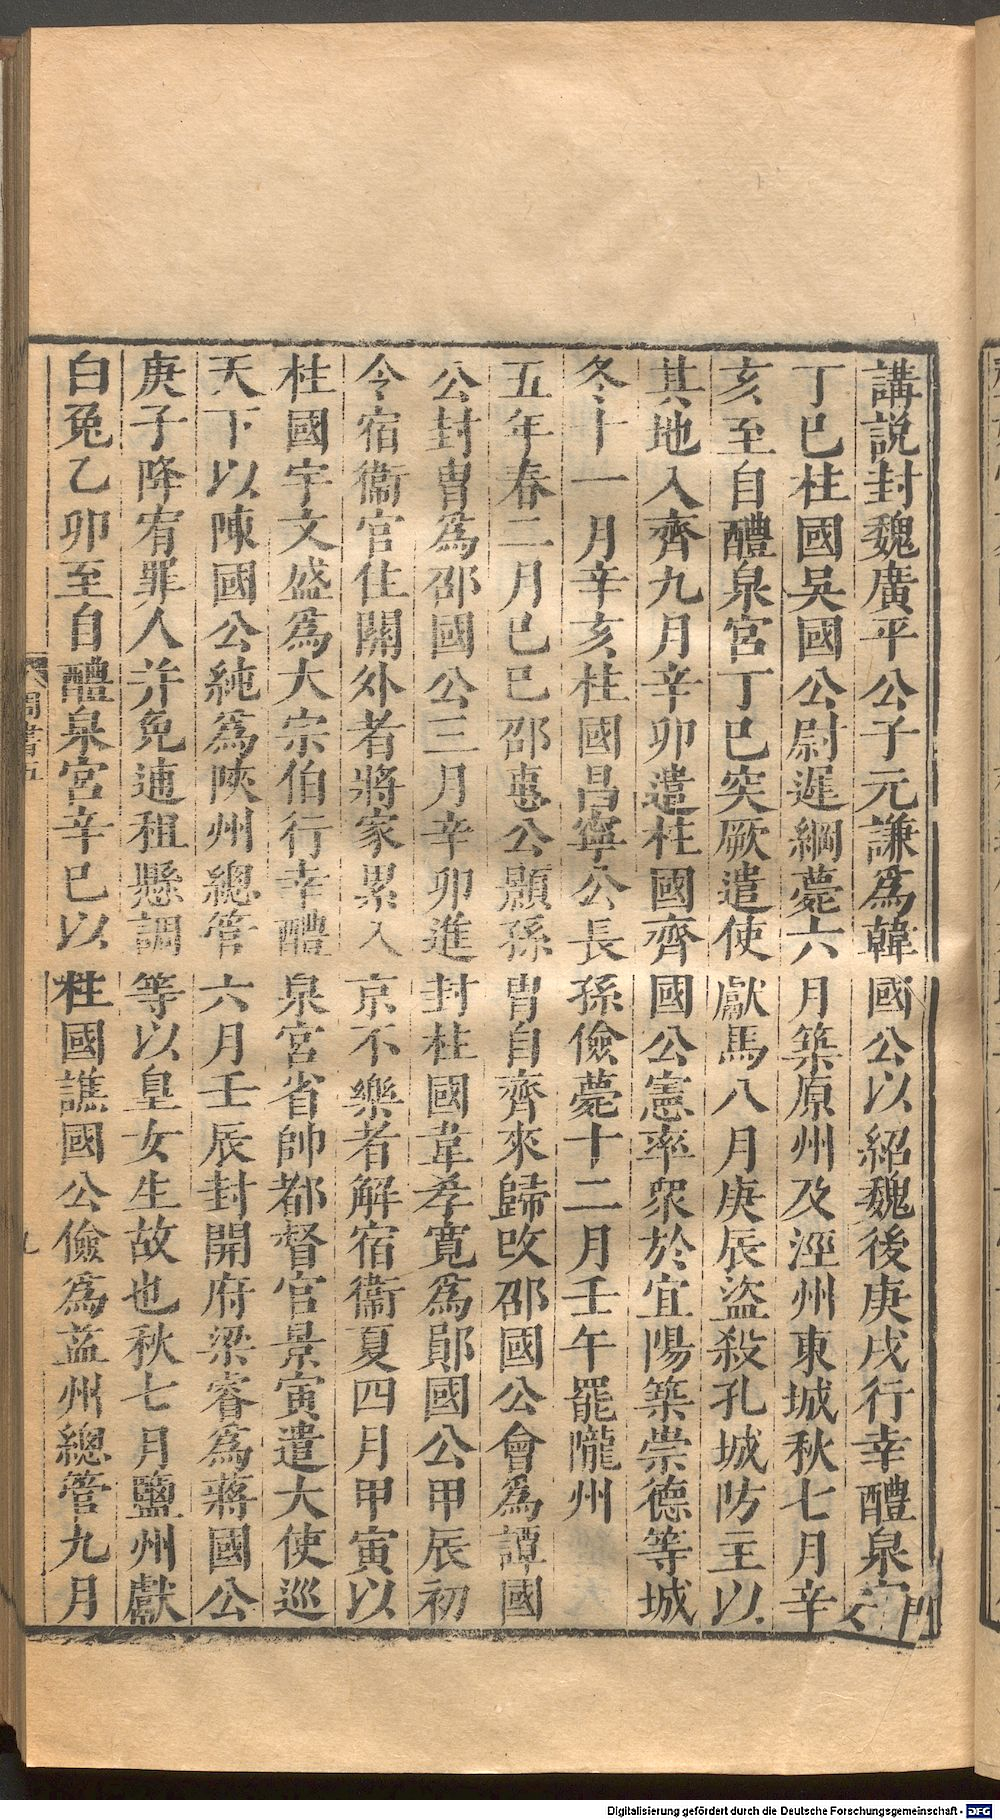 講說封魏廣平公子元謙爲韓國公以紹魏後庚戌行幸醴泉宮
丁巳柱國吳國公尉遲綱薨六月築原州及涇州東城秋七月辛
亥至自醴泉宮丁巳突厥遣使獻馬八月庚辰盜殺孔城防主以
其地入齊九月辛卯遣柱國齊國公憲率衆於宜陽築崇德等城
冬十一月辛亥柱國昌寧公長孫儉薨十二月壬午罷隴州
五年春二月己巳邵惠公顥孫胄自齊來歸改邵國公會爲譚國
公封胄爲邵國公三月辛卯進封柱國韋孝寬爲鄖國公甲辰初
令宿衞官住關外者將家累入京不樂者解宿衞夏四月甲寅以
柱國宇文盛爲大宗伯行幸醴泉宮省帥都督官景寅遣大使巡
天下以陳國公純爲陝州總管六月壬辰封開府梁睿爲蔣國公
庚子降宥罪人并免逋租懸調等以皇女生故也秋七月鹽州獻
白兔乙卯至自醴泉宮辛巳以柱國譙國公儉爲益州總管九月
周書五
九
Digitalisierung gefördert durch die Deutsche Forschungsgemeinschaft - DFG